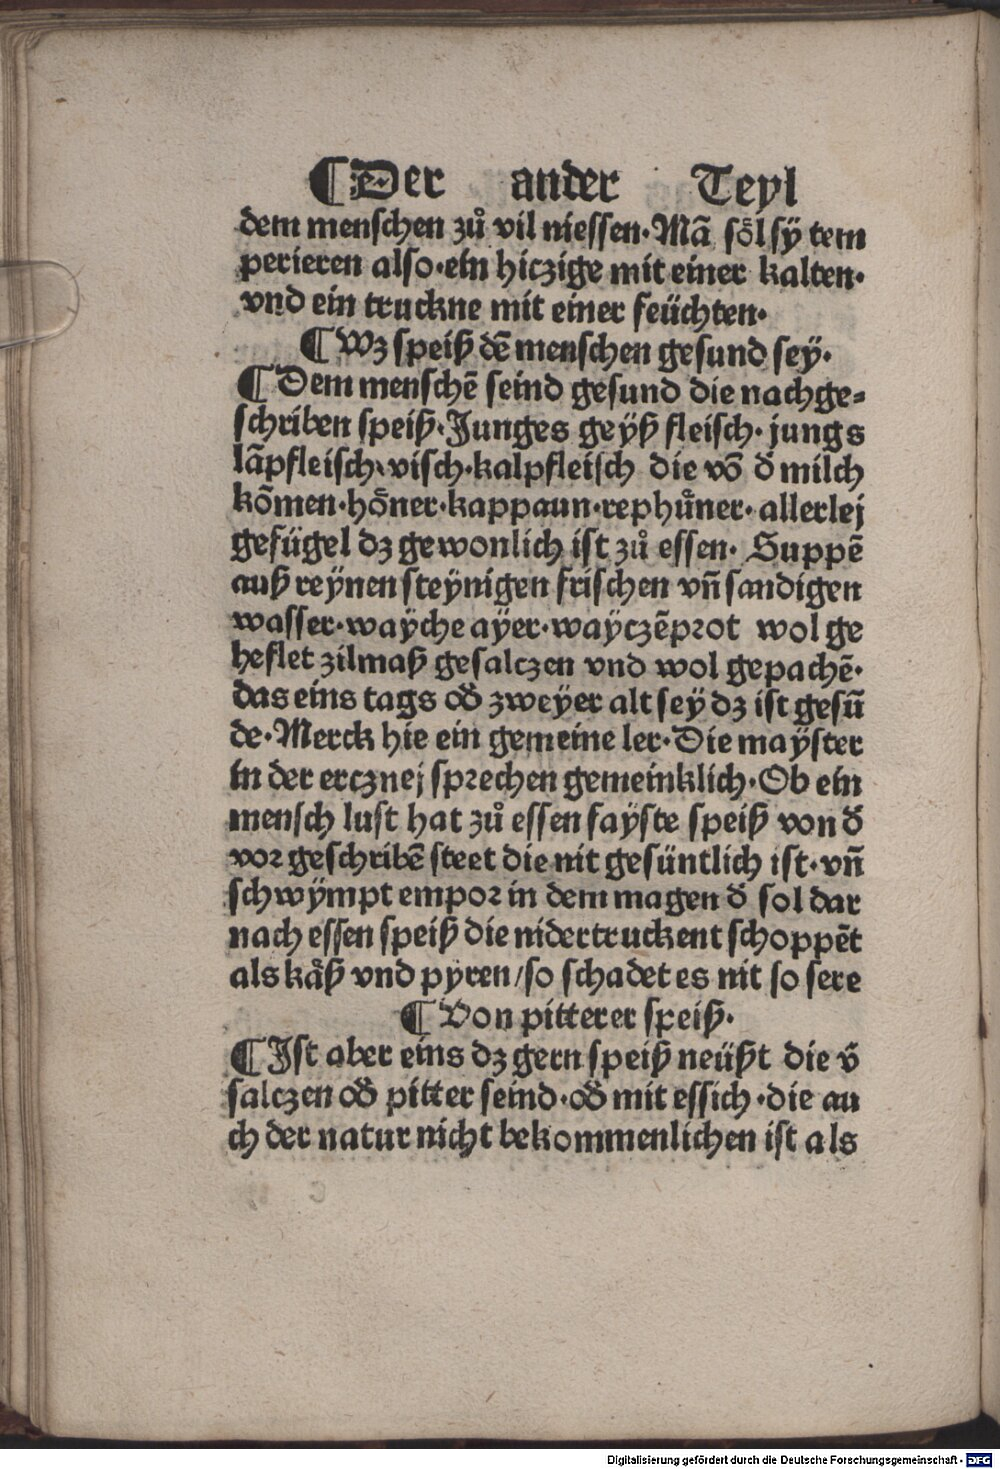 ¶Der ander Teyl
dem menschen zů vil niessen·Mã sȫl sÿ tem
perieren also·ein hiczige mit einer kalten·
vnd ein truckne mit einer feüchten·
¶Wz speiß dẽ menschen gesund sey·
¶Dem menschẽ seind gesund die nachge⸗
schriben speiß·Junges geÿß fleisch·jungs
lãpfleisch·visch·kalpfleisch die võ d̕ milch
kõmen·hoͤner·kappaun·rephuͤner·allerlej
gefügel dz gewonlich ist zů essen· Suppẽ
auß reÿnen steÿnigen frischen vñ sandigen
wasser·waÿche aÿer·waÿczẽpꝛot wol ge
heflet zilmaß gesalczen vnd wol gepachẽ·
das eins tags od̕ zweÿer alt sey dz ist gesũ
de·Merck hie ein gemeine ler·Die maÿster
in der ercznej spꝛechen gemeinklich·Ob ein
mensch lust hat zů essen faÿste speiß von d̕
voꝛ geschribẽ steet die nit gesüntlich ist·vñ
schwÿmpt empoꝛ in dem magen d̕ sol dar
nach essen speiß die nidertruckent schoppẽt
als kaͤß vnd pyren/so schadet es nit so sere
¶Von pitterer speiß·
¶Ist aber eins dz gern speiß neüßt die v̕
salczen od̕ pitter seind·od̕ mit essich·die au
ch der natur nicht bekommenlichen ist als
Digitalisierung gefördert durch die Deutsche Forschungsgemeinschaft - DFG